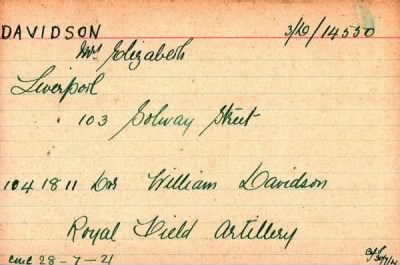 DAVIDSON 3/D/14550
Mrs Elizabeth
Liverpool
103 Solway Street
1041811 Dvr William Davidson
Royal Field Artillery
28-7-21